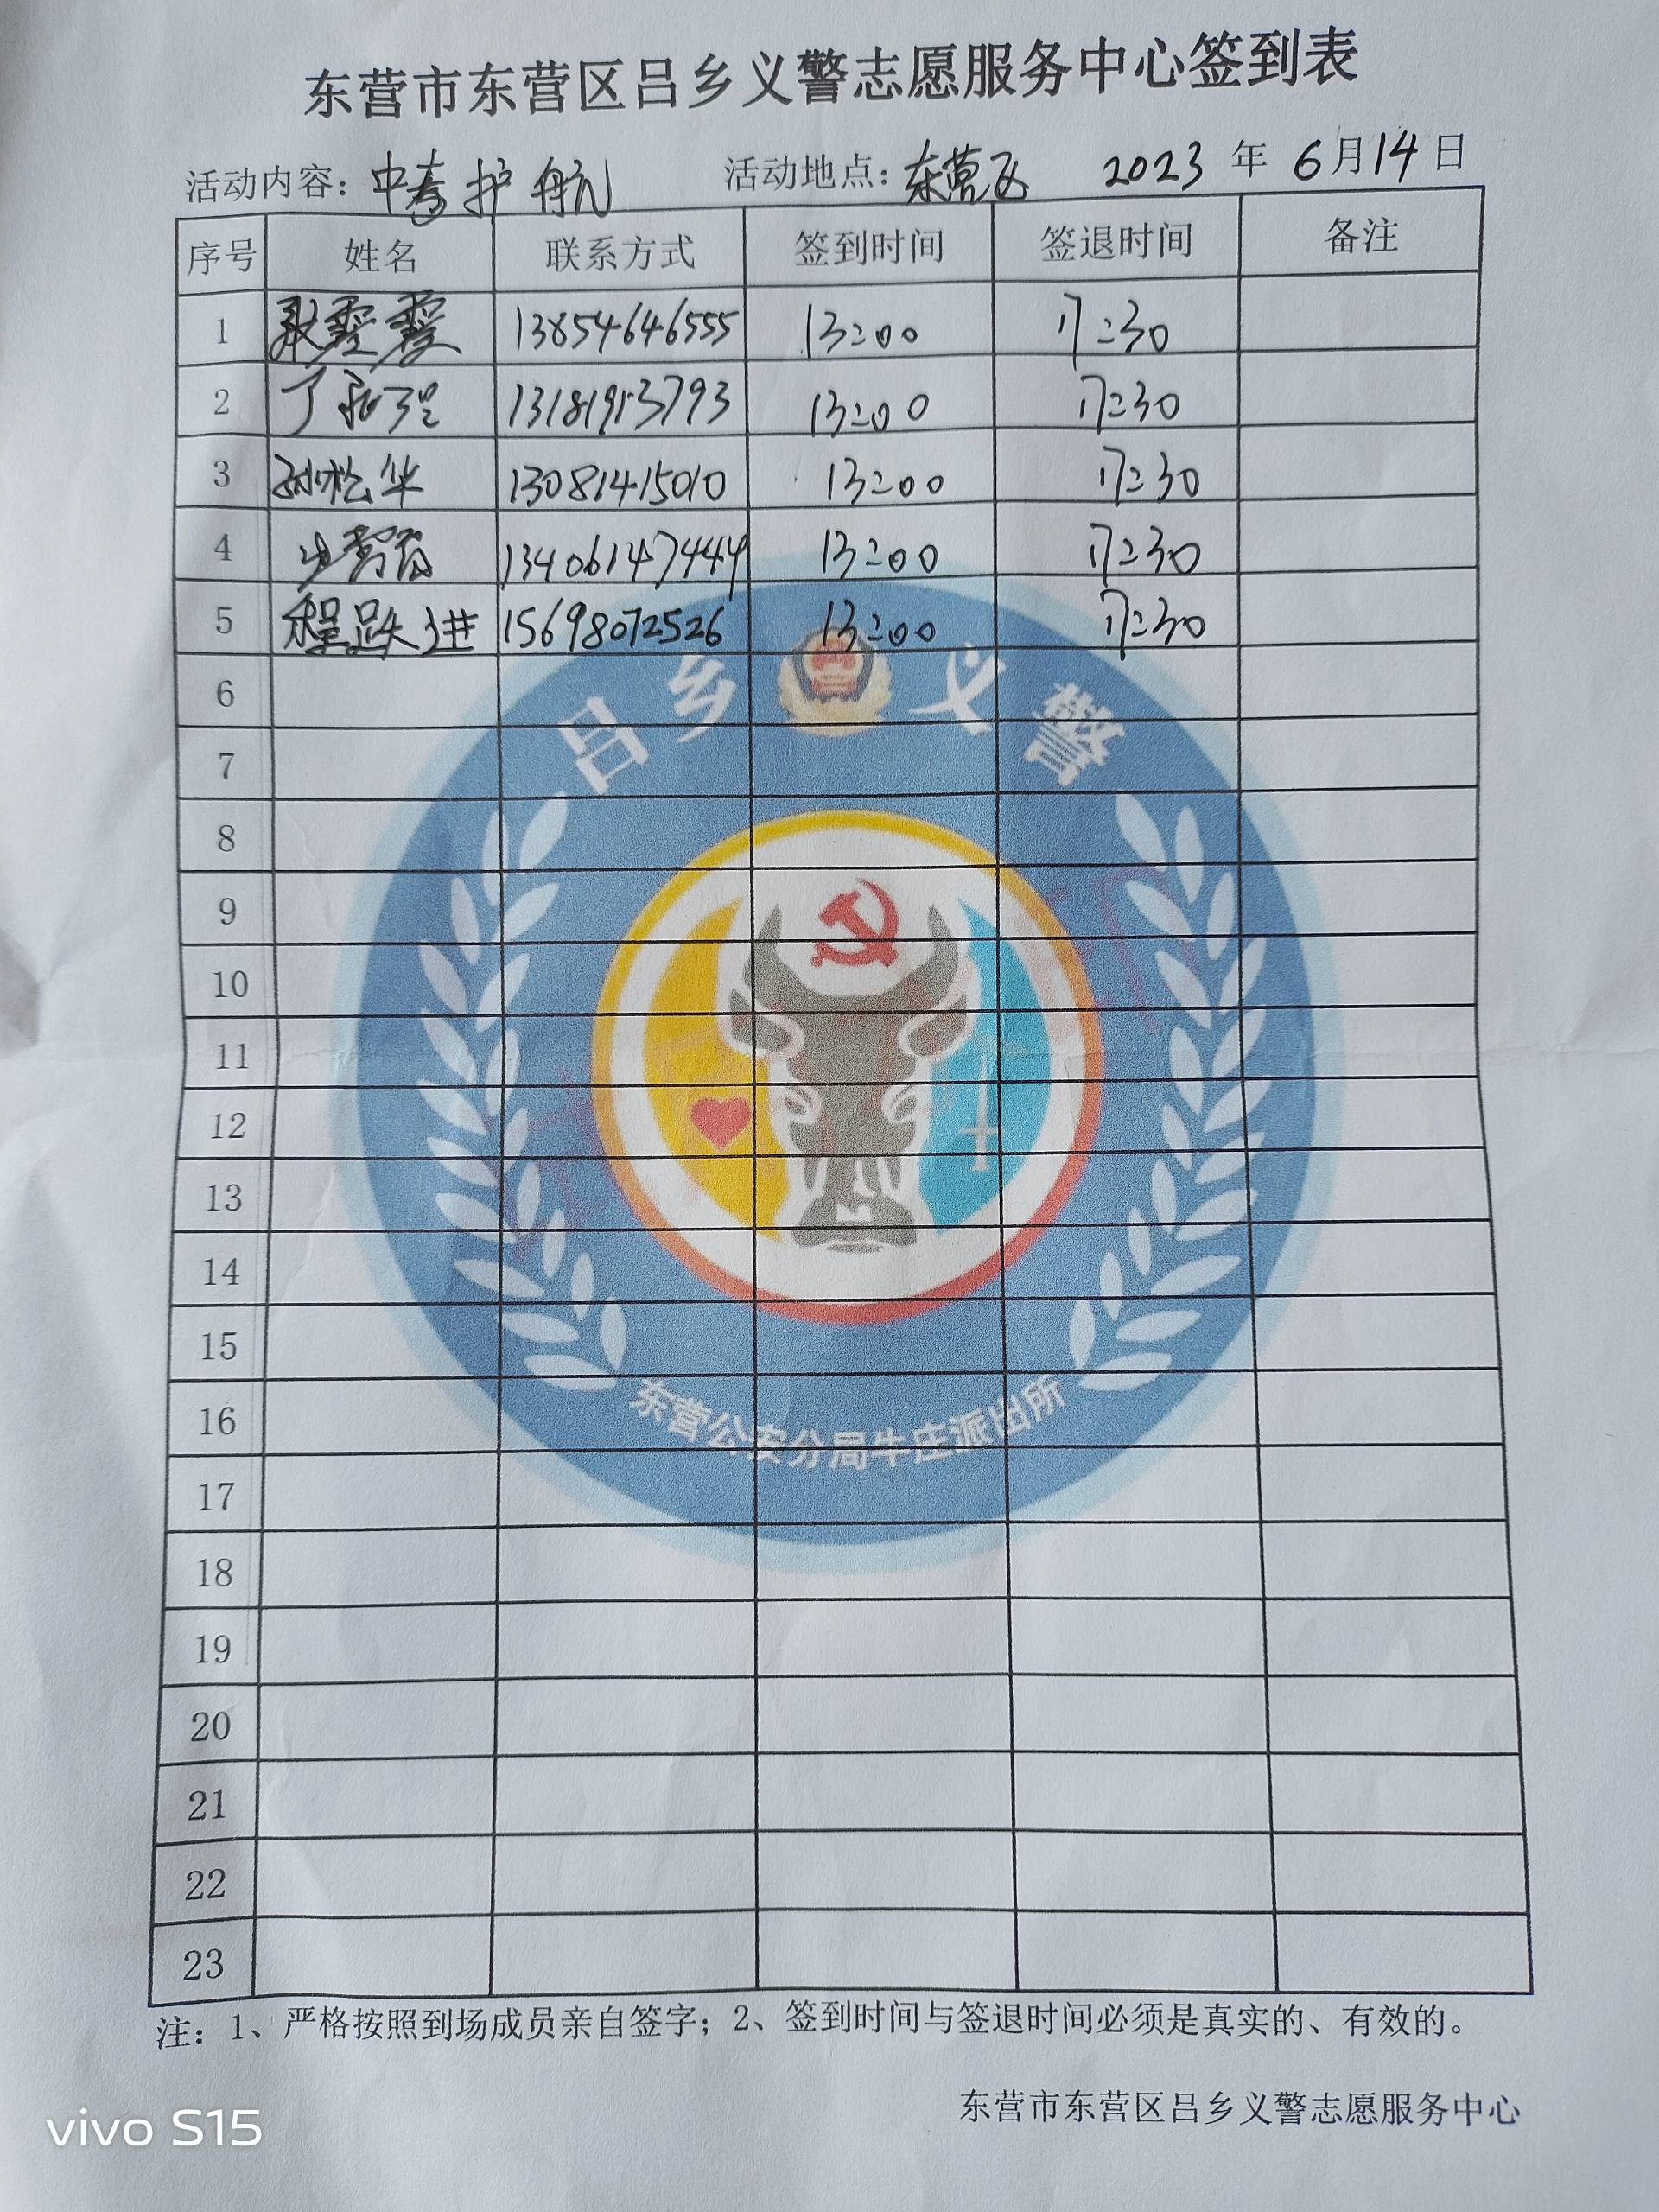 东营市东营区吕乡义警志愿服务中心签到表
活动内容：中考护航 活动地点：东营区 2023年6月14日
序号 姓名 联系方式 签到时间 签退时间 备注
1 13854646555 13:00 17:30
2 丁 强 13181913793 13:00 17:30
3 孙松华 13081415010 13:00 17:30
4 13406147444 13:00 17:30
5 程跃进 15698072526 13:00 17:30
6
吕乡义警
7
8
9
10
11
12
13
14
15
16
东营公安分局牛庄派出所
17
18
19
20
21
22
23
注：1、严格按照到场成员亲自签字；2、签到时间与签退时间必须是真实的、有效的。
东营市东营区吕乡义警志愿服务中心
vivo S15